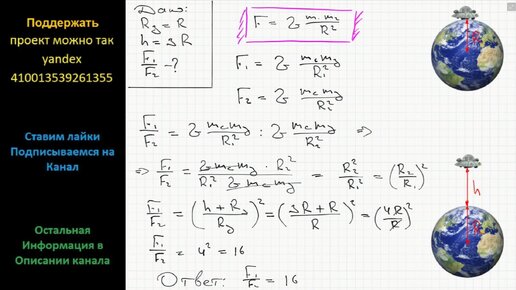 Поддержать
проект можно так
yandex
410013539261355
Ставим лайки
Подписываемся на
Канал
Остальная
Информация в
Описании канала
Дано:
Rз = R
h = 3R
F₁/F₂ - ?
F = G m₁ m₂ / R²
F₁ = G mс mз / R₁²
F₂ = G mс mз / R₂²
F₁/F₂ = G mс mз / R₁² : G mс mз / R₂² ⇒
⇒ F₁/F₂ = G mс mз · R₂² / R₁² G mс mз = R₂² / R₁² = (R₂/R₁)²
F₁/F₂ = ((h + Rз)/Rз)² = ((3R + R)/R)² = (4R/R)²
F₁/F₂ = 4² = 16
Ответ: F₁/F₂ = 16
h